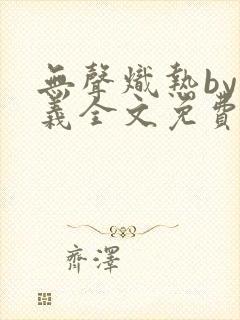 無聲熾熱by
義全文免費
齊澤